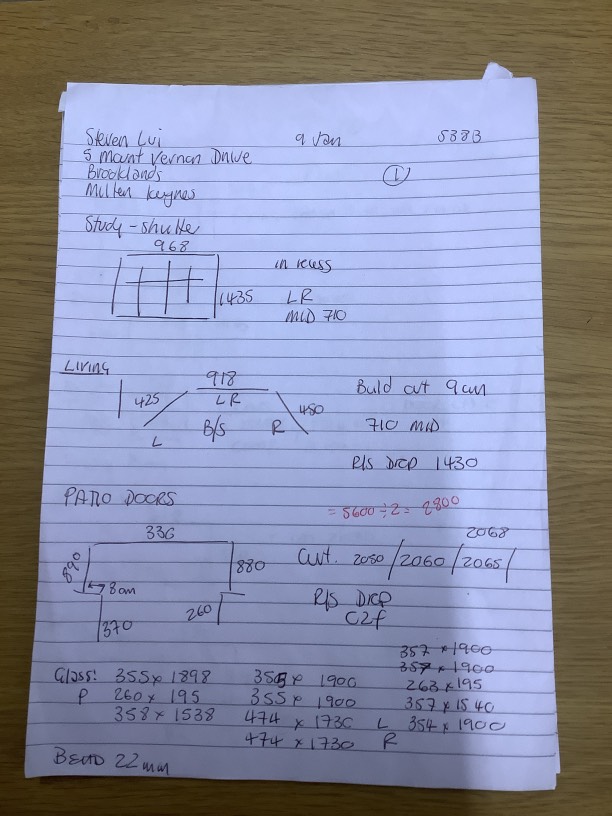 Steven Lui 9 Van 5383
5 Mount Vernon Drive
Brooklands ①
Milten Keynes
Study - shutte
968
in recess
1435 LR
MID 710
Living
918
425 LR 480
L B/S R
Build out 9cm
710 MID
R/S Drop 1430
PATIO DOORS
= 5600 ÷ 2 = 2800
336 2068
890 880 Cut. 2050 / 2060 / 2065 /
8cm R/S Drop
260 C2f
370
Glass: 355 x 1898
P 260 x 195
358 x 1538
355 x 1900
355 x 1900
474 x 1730 L
474 x 1730 R
357 x 1900
357 x 1900
263 x 195
357 x 1540
354 x 1900
BEAD 22mm